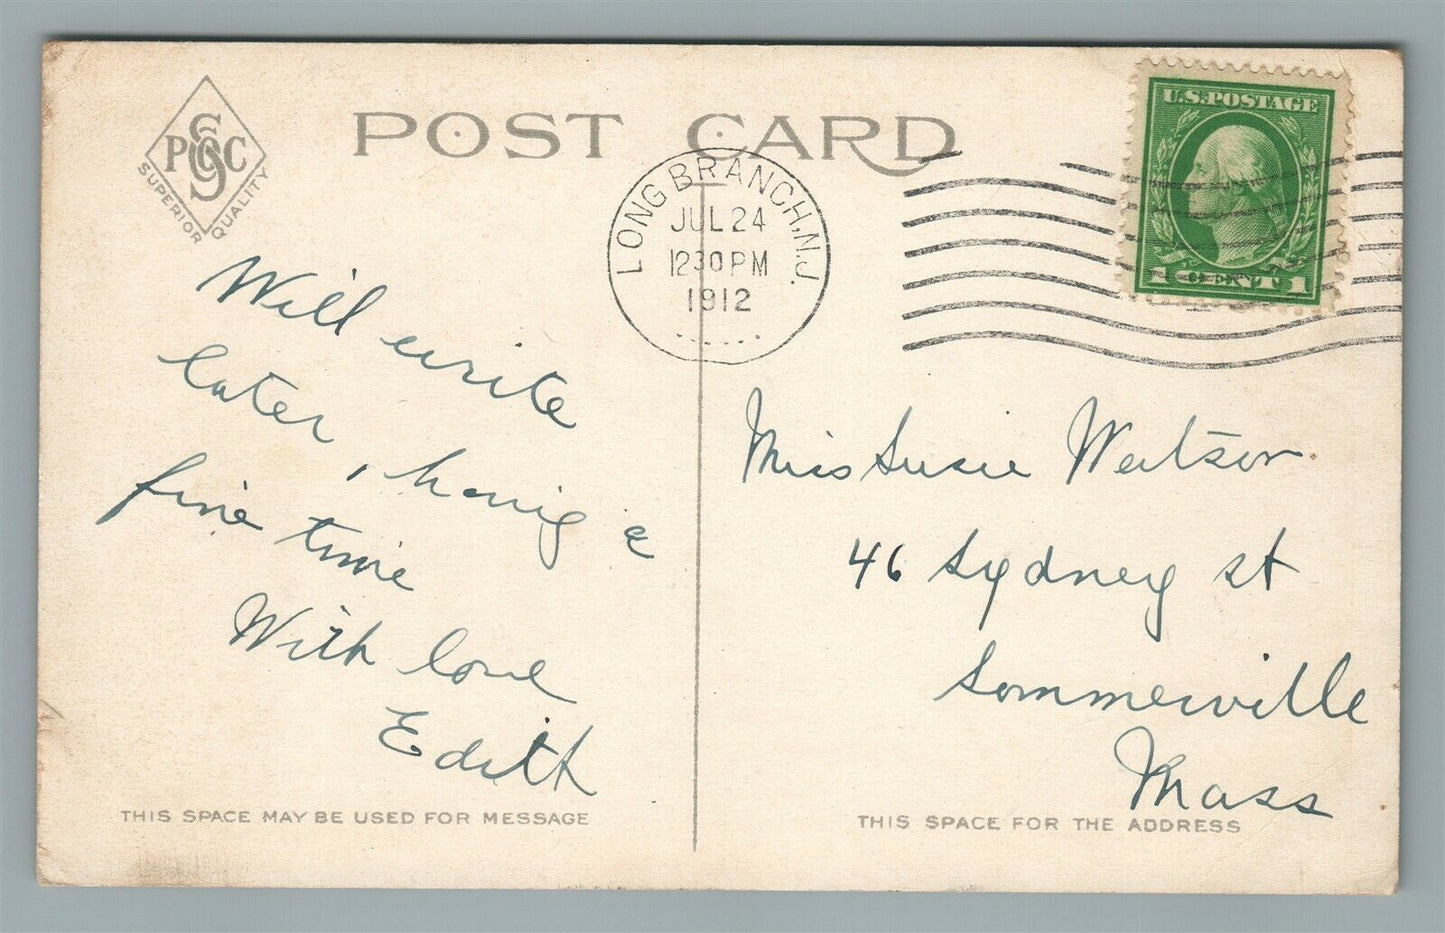 POST CARD
PSCC
SUPERIOR QUALITY
LONG BRANCH, N.J.
JUL 24
12 30 PM
1912
U.S. POSTAGE
1 CENT 1
Will write
later, having a
fine time
With love
Edith
Miss Susie Watson
46 Sydney st
Sommerville
Mass
THIS SPACE MAY BE USED FOR MESSAGE
THIS SPACE FOR THE ADDRESS